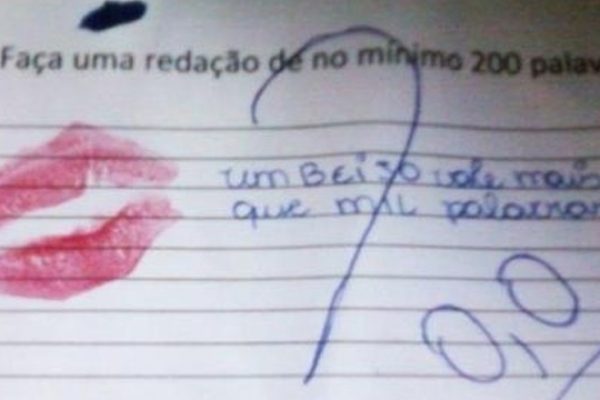 Faça uma redação de no mínimo 200 palav
um BEiJO vale mais
que MIL palavra
?
0,0